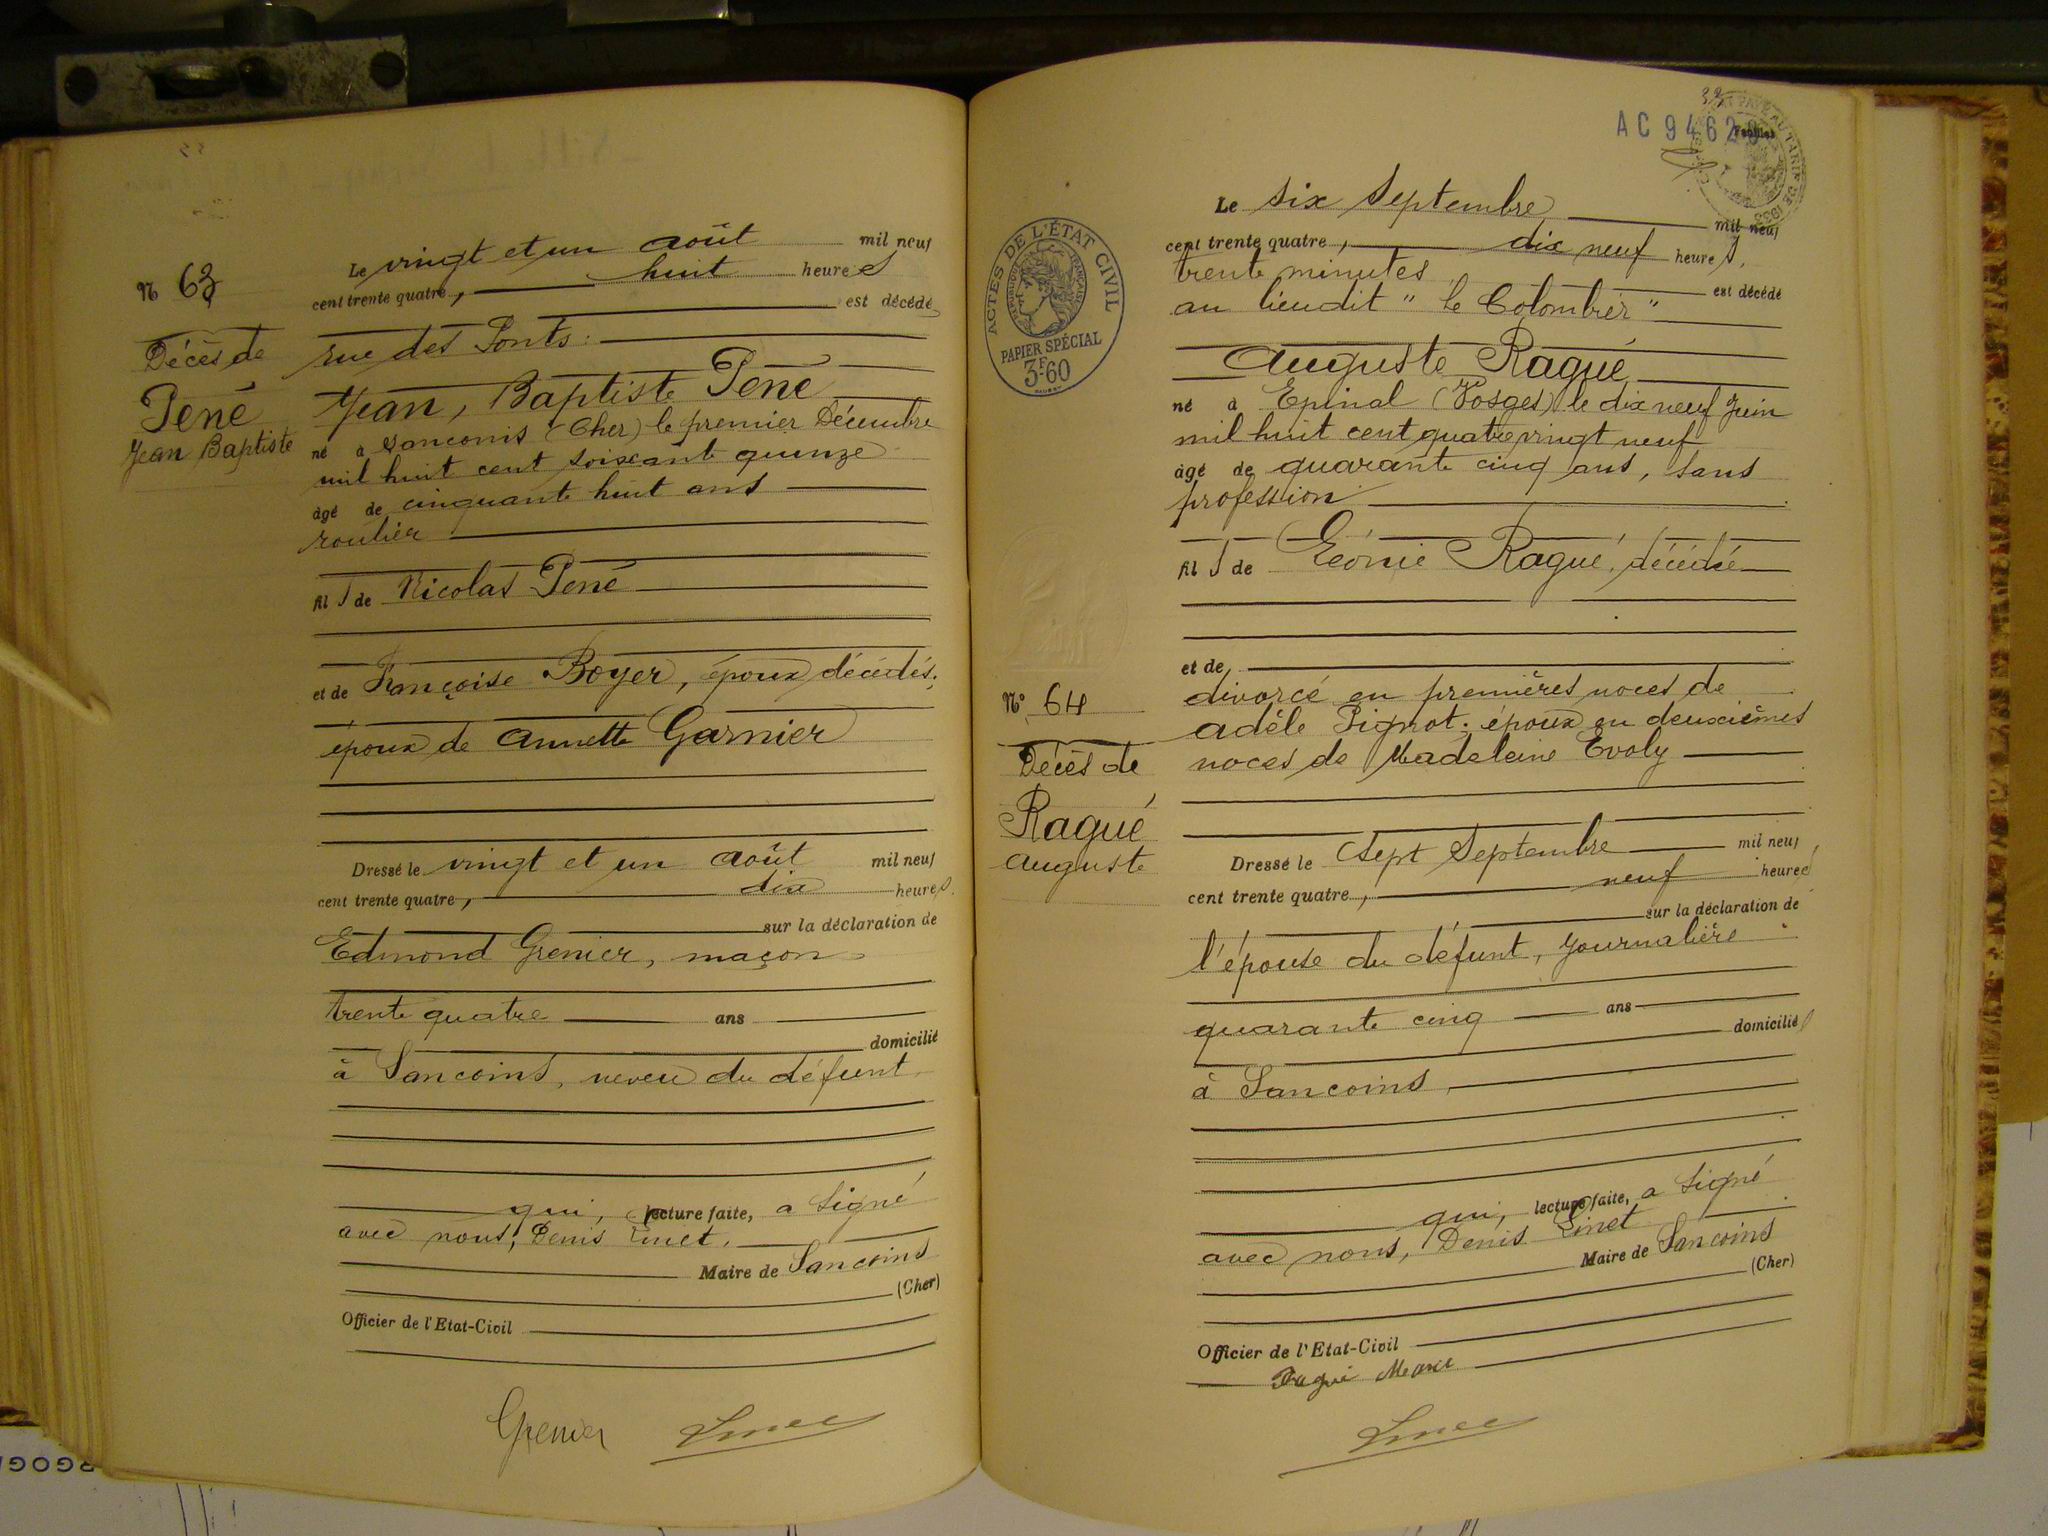 N 63
Décès de
Pené
Jean Baptiste
Le vingt et un août mil neuf
cent trente quatre, huit heures
est décédé
rue des Ponts :
Jean, Baptiste Pené
né à Sanconis (Cher) le premier Décembre
mil huit cent soixante quinze
âgé de cinquante huit ans
roulier
fils de Nicolas Pené
et de Françoise Boyer, époux décédés;
époux de Annette Garnier
Dressé le vingt et un août mil neuf
cent trente quatre, dix heures.
sur la déclaration de
Edmond Grenier, maçon
trente quatre ans
domicilié
à Sancoins, neveu du défunt
qui, lecture faite, a signé
avec nous, Denis Linet,
Maire de Sancoins
(Cher)
Officier de l'Etat-Civil
Grenier
33
AC 9462
Feuillet
ACTES DE L'ÉTAT CIVIL
RÉPUBLIQUE FRANÇAISE
PAPIER SPÉCIAL
3F.60
Le six Septembre mil neuf
cent trente quatre, dix neuf heures,
trente minutes est décédé
au lieudit " le Colombier "
Auguste Ragué
né à Epinal (Vosges) le dix neuf Juin
mil huit cent quatre vingt neuf
âgé de quarante cinq ans, sans
profession
fils de Léonie Ragué, décédée
et de
N° 64
Décès de
Ragué
Auguste
divorcé en premières noces de
Adèle Pignot; époux en deuxièmes
noces de Madeleine Evoly
Dressé le sept Septembre mil neuf
cent trente quatre, neuf heures
sur la déclaration de
l'épouse du défunt, journalière
quarante cinq ans
domiciliée
à Sancoins,
qui, lecture faite, a signé
avec nous, Denis Linet
Maire de Sancoins
(Cher)
Officier de l'Etat-Civil
Ragué